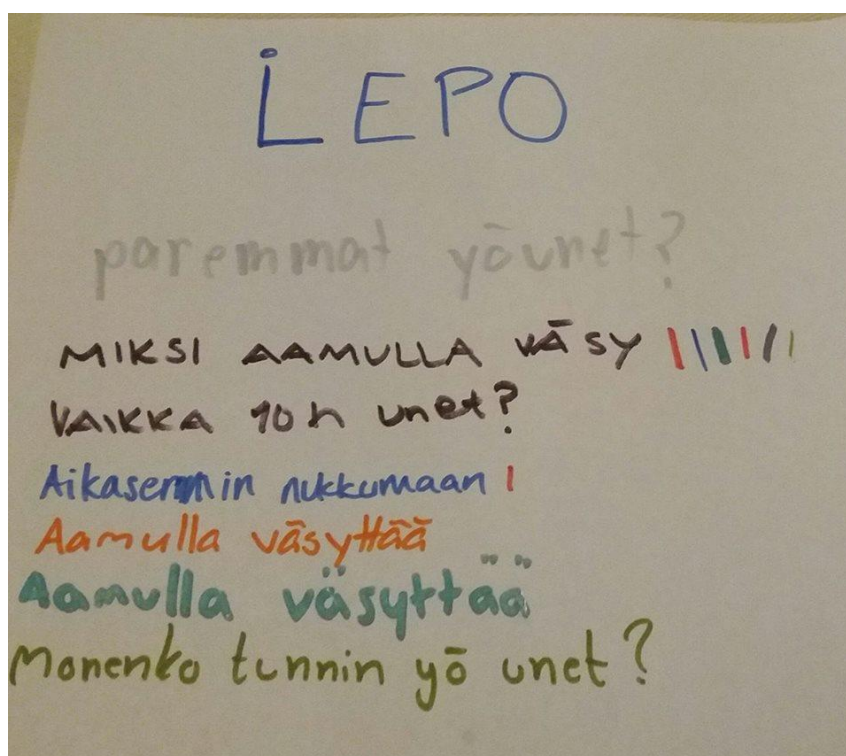 LEPO
paremmat yöunet?
MIKSI AAMULLA VÄSY
VAIKKA 10 h unet?
Aikasemmin nukkumaan
Aamulla väsyttää
Aamulla väsyttää
Monenko tunnin yö unet?